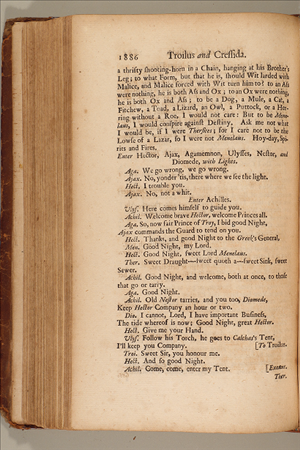 1886 Troilus and Cressida.
a thrifty shooting-horn in a Chain, hanging at his Brother's
Leg; to what Form, but that he is, should Wit larded with
Malice, and Malice forced with Wit turn him to? to an Ass
were nothing, he is both Ass and Ox; to an Ox were nothing,
he is both Ox and Ass; to be a Dog, a Mule, a Cat, a
Fitchew, a Toad, a Lizard, an Owl, a Puttock, or a Her-
ring without a Roe, I would not care: But to be Mene-
laus, I would conspire against Destiny. Ask me not what
I would be, if I were Thersites; for I care not to be the
Lowse of a Lazar, so I were not Menelaus. Hoy-day, Spi-
rits and Fires.
Enter Hector, Ajax, Agamemnon, Ulysses, Nestor, and
Diomede, with Lights.
Aga. We go wrong, we go wrong.
Ajax. No, yonder 'tis, there where we see the light.
Hect. I trouble you.
Ajax. No, not a whit.
Enter Achilles.
Ulys. Here comes himself to guide you.
Achil. Welcome brave Hector, welcome Princes all.
Aga. So, now fair Prince of Troy, I bid good Night,
Ajax commands the Guard to tend on you.
Hect. Thanks, and good Night to the Greek's General.
Men. Good Night, my Lord.
Hect. Good Night, sweet Lord Menelaus.
Ther. Sweet Draught—sweet quoth a—sweet Sink, sweet
Sewer.
Achil. Good Night, and welcome, both at once, to those
that go or tarry.
Aga. Good Night.
Achil. Old Nestor tarries, and you too, Diomede,
Keep Hector Company an hour or two.
Dio. I cannot, Lord, I have important Business,
The tide whereof is now; Good Night, great Hector.
Hect. Give me your Hand.
Ulys. Follow his Torch, he goes to Calchas's Tent,
I'll keep you Company. [To Troilus.
Troi. Sweet Sir, you honour me.
Hect. And so good Night.
Achil. Come, come, enter my Tent. [Exeunt.
Ther.